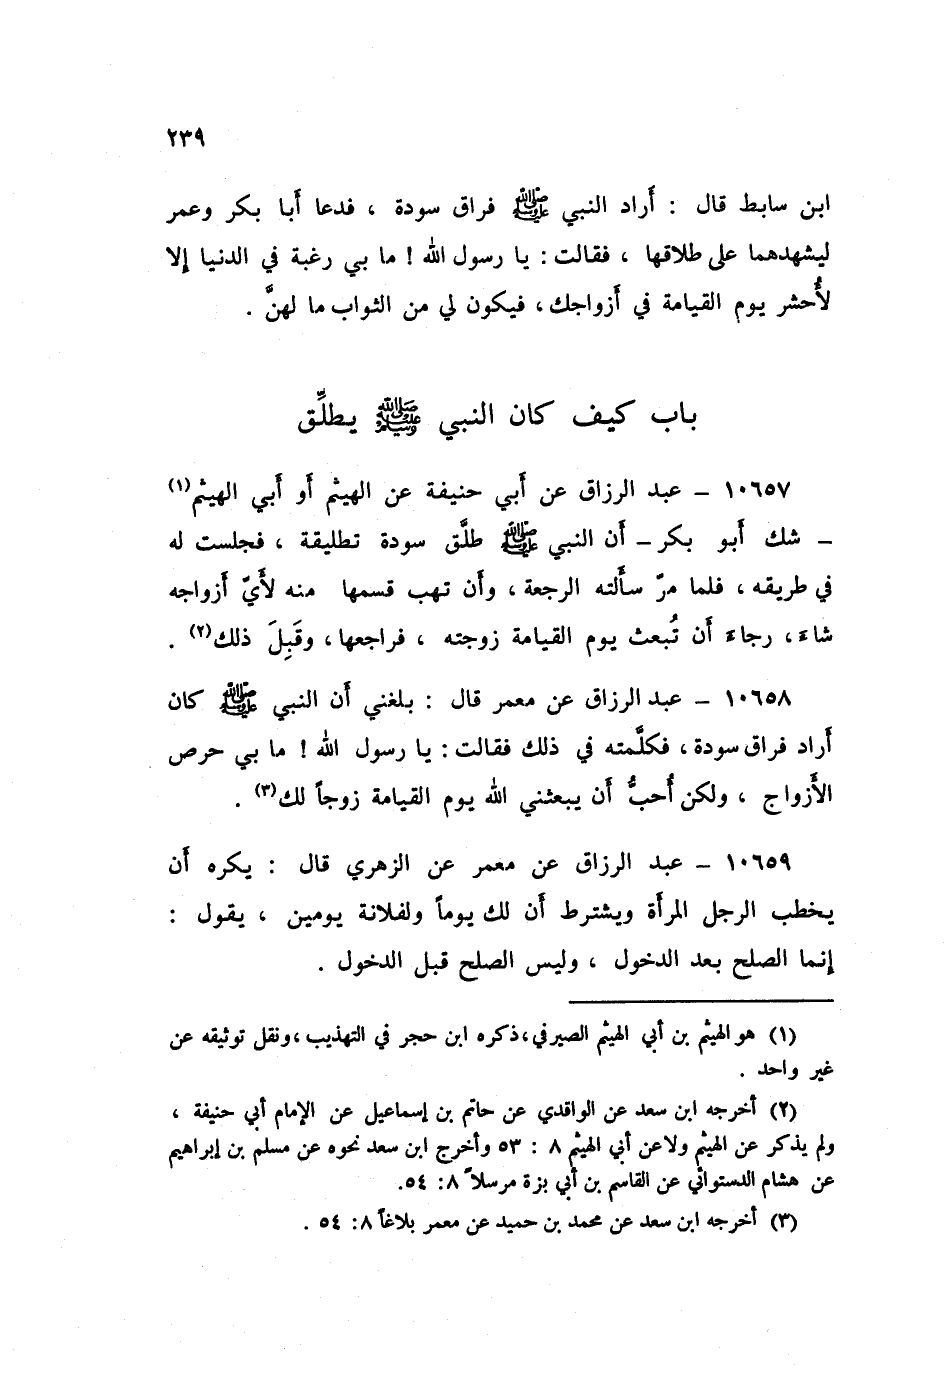 ٢٣٩
ابن سابط قال : أَراد النبي ﷺ فراق سودة ، فدعا أَبا بكر وعمر
ليشهدهما على طلاقها ، فقالت : يا رسول الله ! ما بي رغبة في الدنيا إلا
لأُحشر يوم القيامة في أَزواجك ، فيكون لي من الثواب ما لهنَّ .
باب كيف كان النبي ﷺ يطلِّق
١٠٦٥٧ – عبد الرزاق عن أَبي حنيفة عن الهيثم أَو أَبي الهيثم(١)
– شك أَبو بكر – أَن النبي ﷺ طلَّق سودة تطليقة ، فجلست له
في طريقه ، فلما مرّ سأَلته الرجعة ، وأَن تهب قسمها منه لأَيّ أَزواجه
شاءَ ، رجاءَ أَن تُبعث يوم القيامة زوجته ، فراجعها ، وقَبِلَ ذلك(٢) .
١٠٦٥٨ – عبد الرزاق عن معمر قال : بلغني أَن النبي ﷺ كان
أَراد فراق سودة ، فكلَّمته في ذلك فقالت : يا رسول الله ! ما بي حرص
الأَزواج ، ولكن أُحبُّ أَن يبعثني الله يوم القيامة زوجاً لك(٣) .
١٠٦٥٩ – عبد الرزاق عن معمر عن الزهري قال : يكره أَن
يخطب الرجل المرأَة ويشترط أَن لك يوماً ولفلانة يومين ، يقول :
إنما الصلح بعد الدخول ، وليس الصلح قبل الدخول .
(١) هو الهيثم بن أبي الهيثم الصيرفي ، ذكره ابن حجر في التهذيب ، ونقل توثيقه عن
غير واحد .
(٢) أخرجه ابن سعد عن الواقدي عن حاتم بن إسماعيل عن الإمام أبي حنيفة ،
ولم يذكر عن الهيثم ولا عن أبي الهيثم ٨ : ٥٣ وأخرج ابن سعد نحوه عن مسلم بن إبراهيم
عن هشام الدستوائي عن القاسم بن أبي بزة مرسلاً ٨ : ٥٤.
(٣) أخرجه ابن سعد عن محمد بن حميد عن معمر بلاغاً ٨ : ٥٤ .